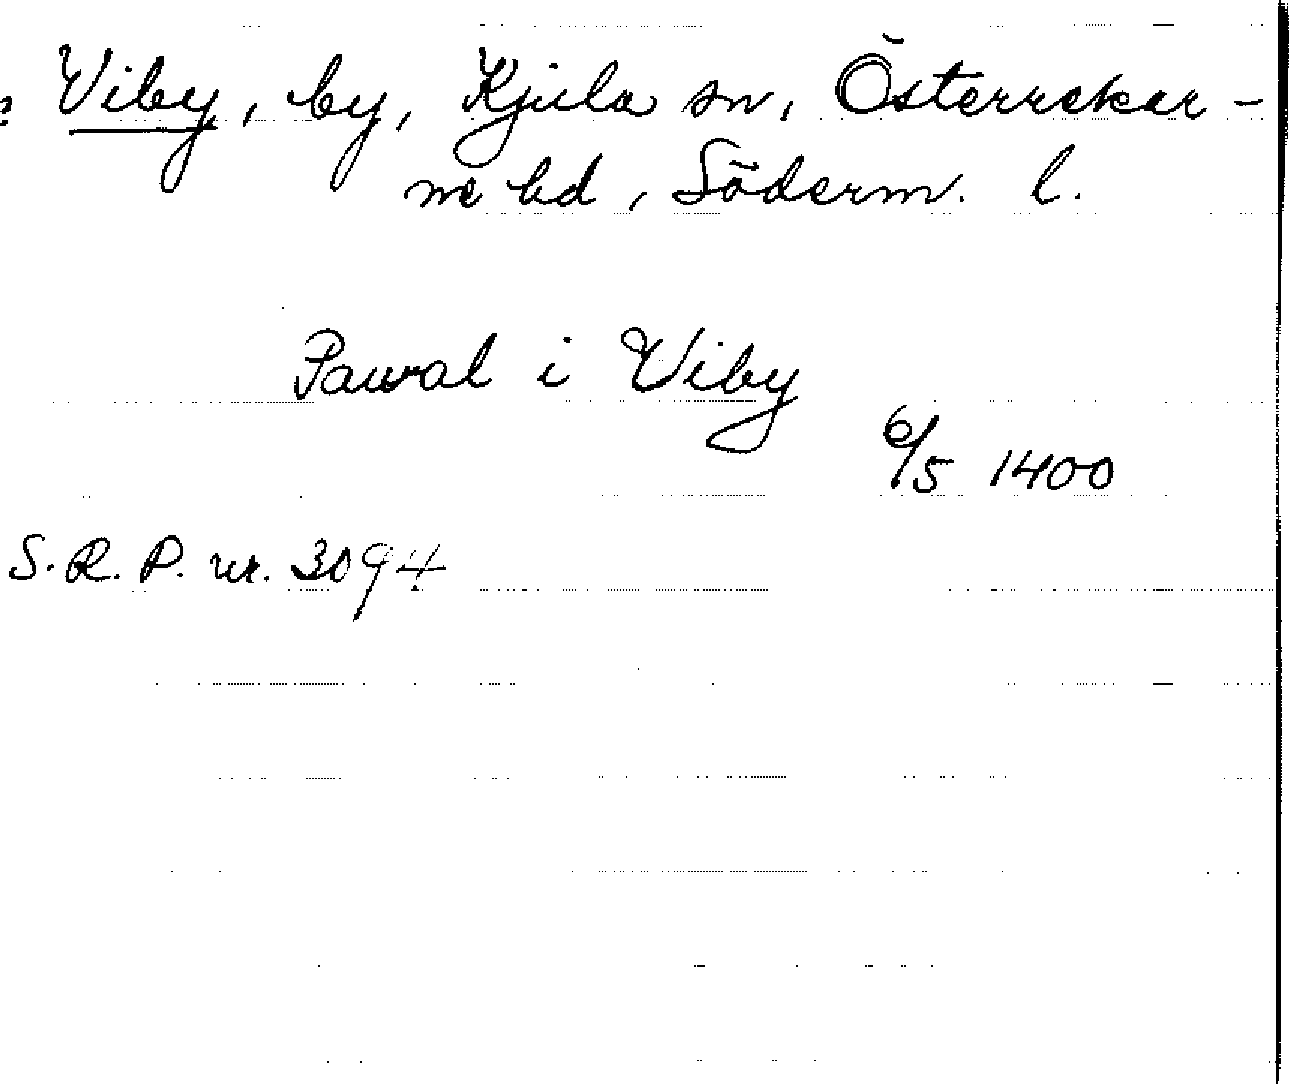 Viby, by, Kjula sn, Österrekar-
ne hd, Söderm. l.
Pawal i Viby
6/5 1400
S.R.P. nr. 3094